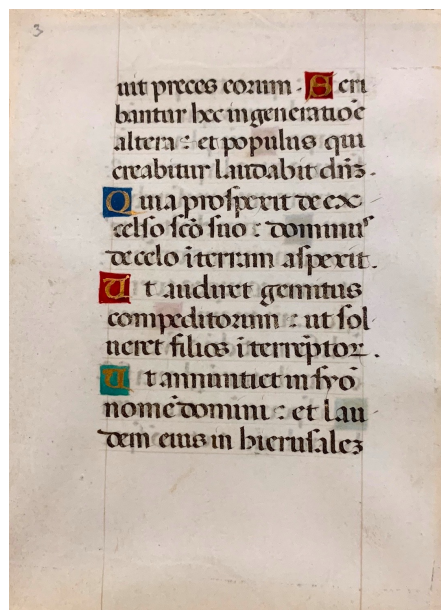 3
uit preces eorum · Scri
bantur hec in generatiōe
altera : et populus qui
creabitur laudabit dn̄ꝫ .
Quia prosperit de ex
celso sc̄o suo : dominus
de celo ī terram asperit .
Ut audiret gemitus
compeditorum : ut sol
ueret filios ī terrēptoꝝ .
Ut annuntiet in syō
nomē domini : et lau
dem eius in hierusaleꝫ